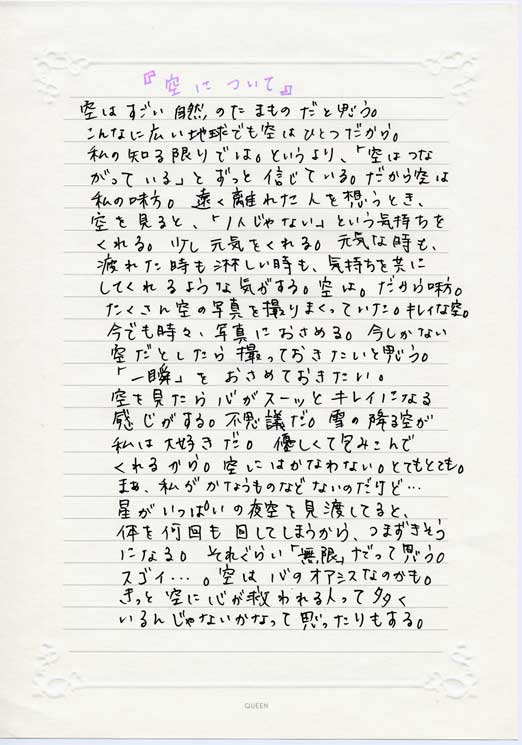 『空について』
空はすごい自然のたまものだと思う。
こんなに広い地球でも空はひとつだから。
私の知る限りでは。というより、「空はつな
がっている」とずっと信じている。だから空は
私の味方。遠く離れた人を想うとき、
空を見ると、「1人じゃない」という気持ちを
くれる。少し元気をくれる。元気な時も、
疲れた時も淋しい時も、気持ちを共に
してくれるような気がする。空は。だから味方。
たくさん空の写真を撮りまくっていた。キレイな空。
今でも時々、写真におさめる。今しかない
空だとしたら撮っておきたいと思う。
「一瞬」をおさめておきたい。
空を見たら心がスーッとキレイになる
感じがする。不思議だ。雪の降る空が
私は大好きだ。優しくて包みこんで
くれるから。空にはかなわない。とてもとても。
まぁ、私がかなうものなどないのだけど…
星がいっぱいの夜空を見渡してると、
体を何回も回してしまうから、つまずきそう
になる。それぐらい「無限」だって思う。
スゴイ…。空は心のオアシスなのかも。
きっと空に心が救われる人って多く
いるんじゃないかなって思ったりもする。
QUEEN